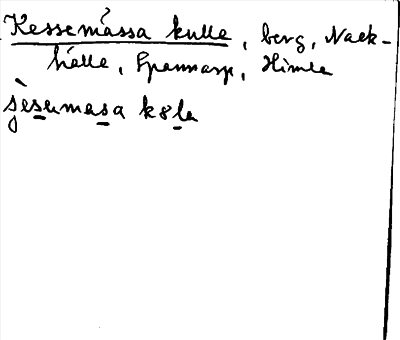 Kessemåssa kulle, berg, Nack-
hälle, Spannarp, Himle
jèsumasa k8la